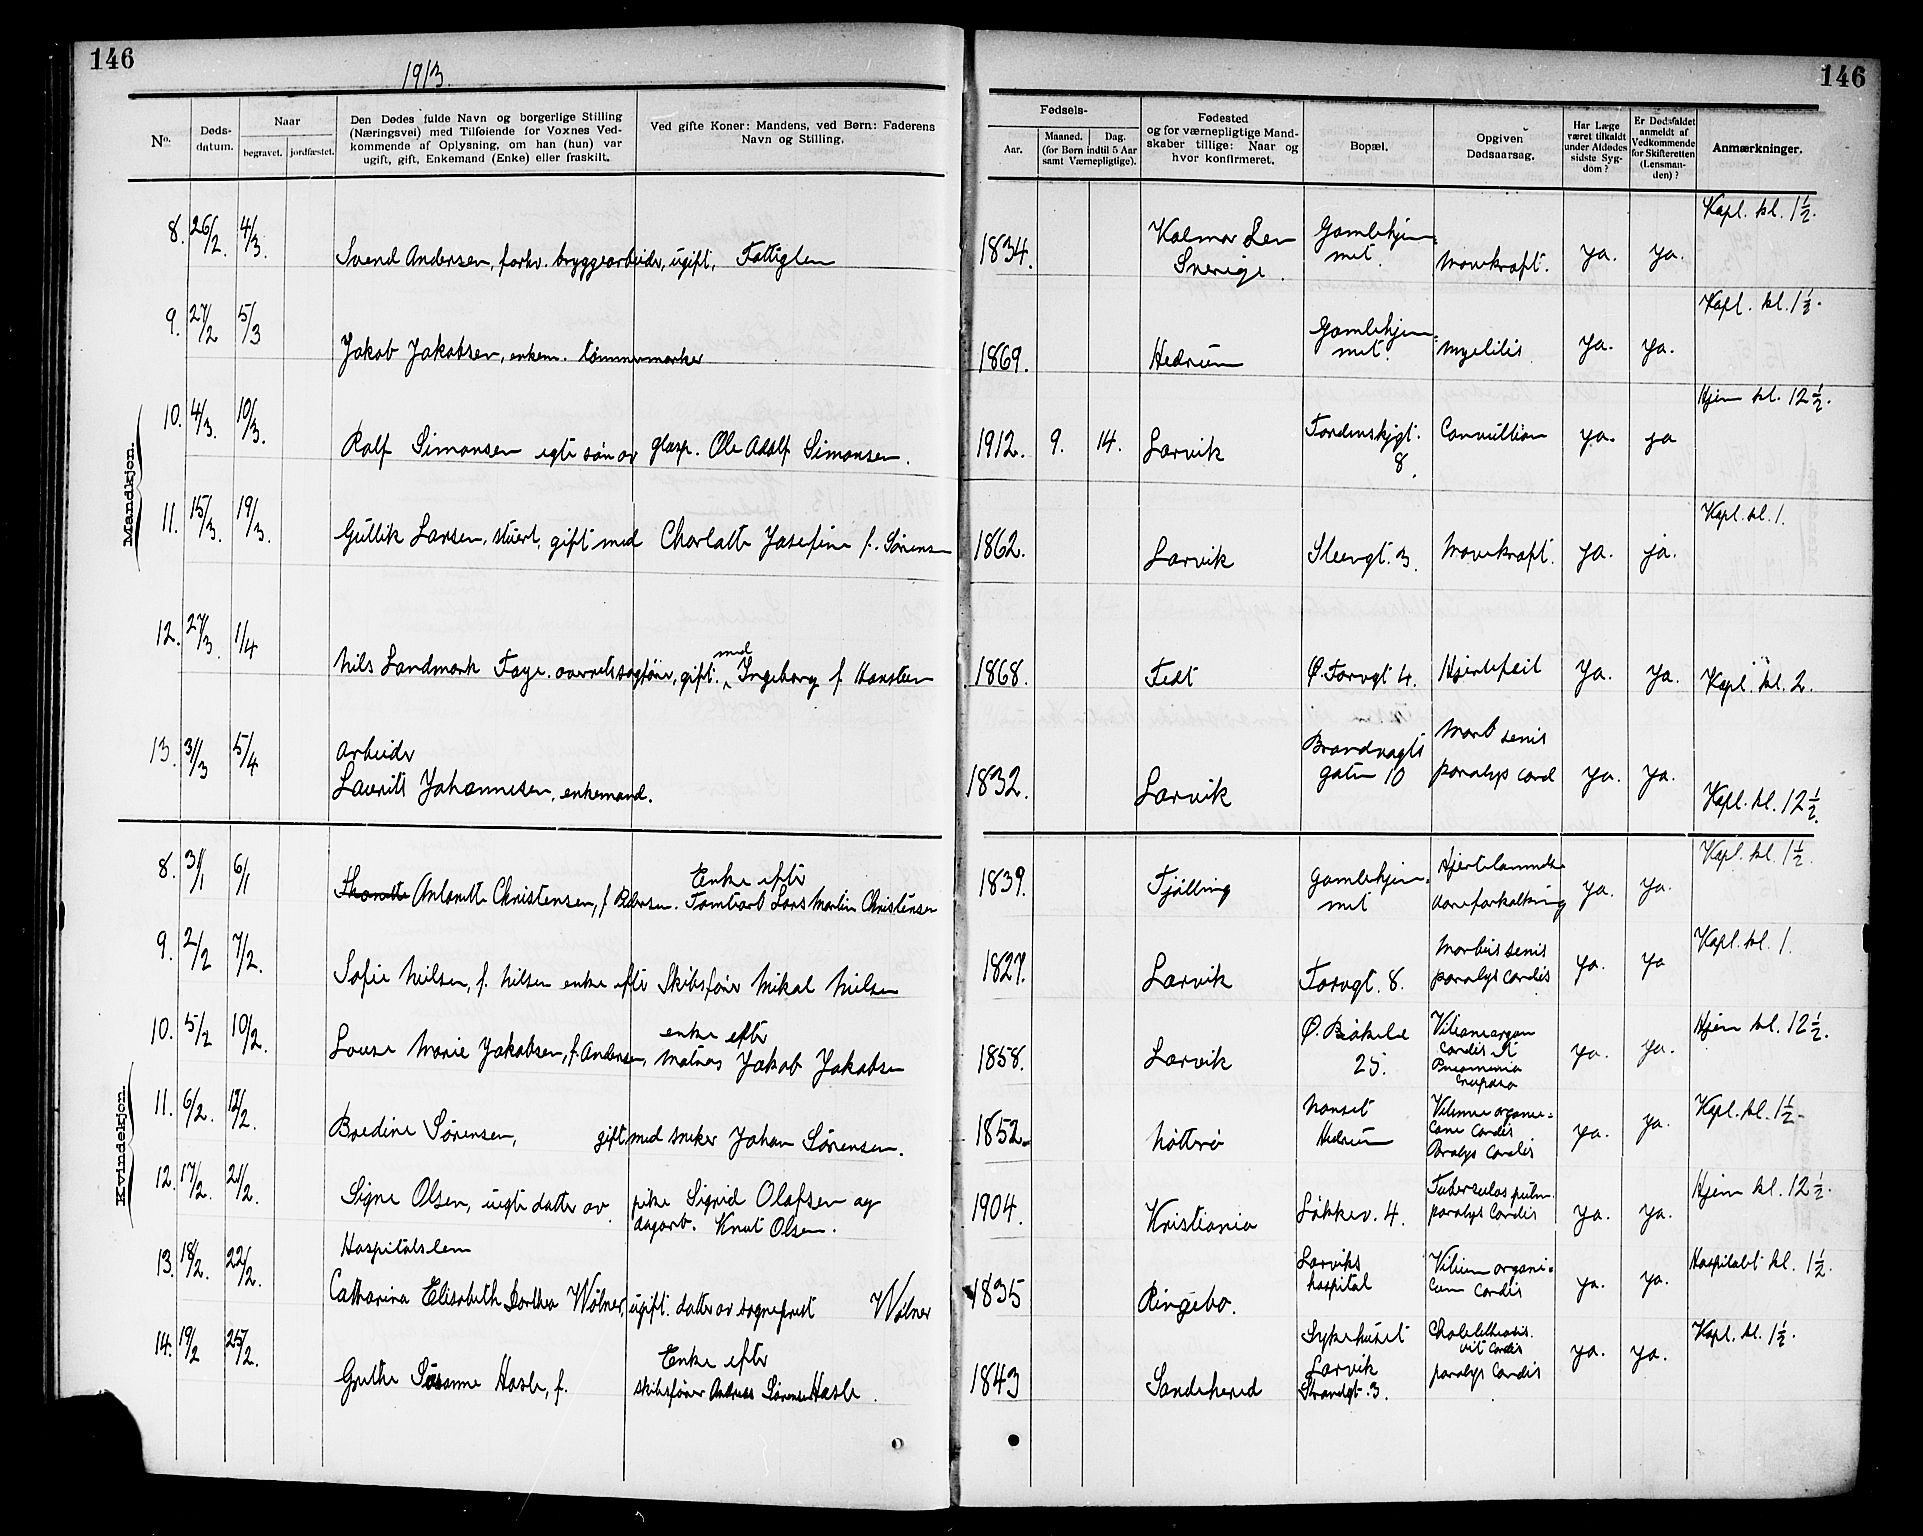 146
1913.
146
No.
Døds-
datum.
Naar
begravet.
jordfæstet.
Den Dødes fulde Navn og borgerlige Stilling
(Næringsvei) med Tilføiende for Voxnes Ved-
kommende af Oplysning, om han (hun) var
ugift, gift, Enkemand (Enke) eller fraskilt.
Ved gifte Koner: Mandens, ved Børn: Faderens
Navn og Stilling.
Fødsels-
Aar.
Maaned.
Dag.
(for Børn indtil 5 Aar
samt Værnepligtige).
Fødested
og for værnepligtige Mand-
skaber tillige: Naar og
hvor konfirmeret.
Bopæl.
Opgiven
Dødsaarsag.
Har Læge
været tilkaldt
under Afdødes
sidste Syg-
dom?
Er Dødsfaldet
anmeldt af
Vedkommende
for Skifteretten
(Lensman-
den)?
Anmærkninger.
Mandkjøn.
8. 26/2. 4/3. Svend Andersen, forhv. bryggearbeider, ugift, Fattiglem 1834. Kalmar Len
Sverige. Gamlehjem-
met. Marekraft. ja. ja. Kapl. kl. 1½.
9. 27/2 5/3 Jakob Jakobsen, enkem. tømmermarker 1869. Hedrum Gamlehjem-
met. Myelitis ja. ja. Kapl. kl. 1½.
10. 4/3. 10/3. Ralf Simonsen egte søn av glasp. Ole Adolf Simonsen. 1912. 9. 14. Larvik
8. Convultion ja. ja Hjem kl. 12½.
11. 15/3. 19/3. Gullik Larsen, stuert, gift med Charlotte Josefine f. Sørensen 1862. Larvik Steengt. 3. Marekraft. ja. ja. Kapl. kl. 1.
12. 27/3. 1/4 Nils Landmark Faye. overretssagfører, gift. med Ingeborg f Hansteen 1868. Ø. Torvgt 4. Hjertefeil ja. ja. Kapl. kl. 2.
13. 31/3 5/4 Arbeider
Laurits Johannesen, enkemand. 1832. Larvik Brandvagts
gaten 10 Morb senis
paralys cord ja. ja. Kapl. kl. 12½.
Kvindekjøn.
8. 31/1 6/1 Antonette Christensen, f Pedersen. Enke efter
Tomtearb Lars Martin Christensen 1839. Tjølling Gamlehjem-
met Hjertelammelse
Aareforkalkning ja. ja. Kapl. kl. 1½.
9. 2/2 7/2. Sofie Nielsen, f. Nilsen enke efter Skibsfører Mikal Nielsen 1827. Larvik Torvgt. 8. Morbus senis
paralys cordis ja. ja Kapl. kl. 1.
10. 5/2 10/2. Louise Marie Jakobsen, f. Andersen, enke efter
matros Jakob Jakobsen 1858. Larvik Ø. Bøkelie
25. Vitium organ
cordis et
Pneumonia
cruposa ja. ja. Hjem kl. 12½.
11. 6/2. 12/2. Bredine Sørensen, gift med sneker Johan Sørensen. 1852. Nøtterø Nanset
Hedrum Vitium organi-
cum cordis
Paralys cordis ja. ja. Kapl. kl. 1½
12. 17/2. 21/2. Signe Olsen, uegte datter av pike Sigrid Olafsen og
dagarb. Knut Olsen. 1904. Kristiania Løkkev. 4. Tuberculos pulm.
paralys cordis ja. ja. Hjem kl. 12½.
13. 18/2. 22/2. Hospitalslem
Catharina Elisabeth Dorthea Wølner, ugift. datter av sogneprest Wølner 1835 Ringebo. Larviks
hospital Vitium organi-
cum cordis ja. ja. Hospitalet kl. 1½.
14. 19/2 25/2. Grethe Susanne Hasle, f. Enke efter
skibsfører Andreas Sørensen Hasle. 1843 Sandeherred Sykehuset
Larvik
Strandgt. 3. Cholelithiasis.
vit cordis
paralys cordis ja. ja. Kapl. kl. 1½.